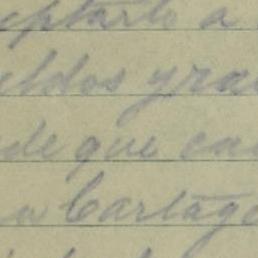 eptarlo a
eldos y ra
de que ca
a Cartag